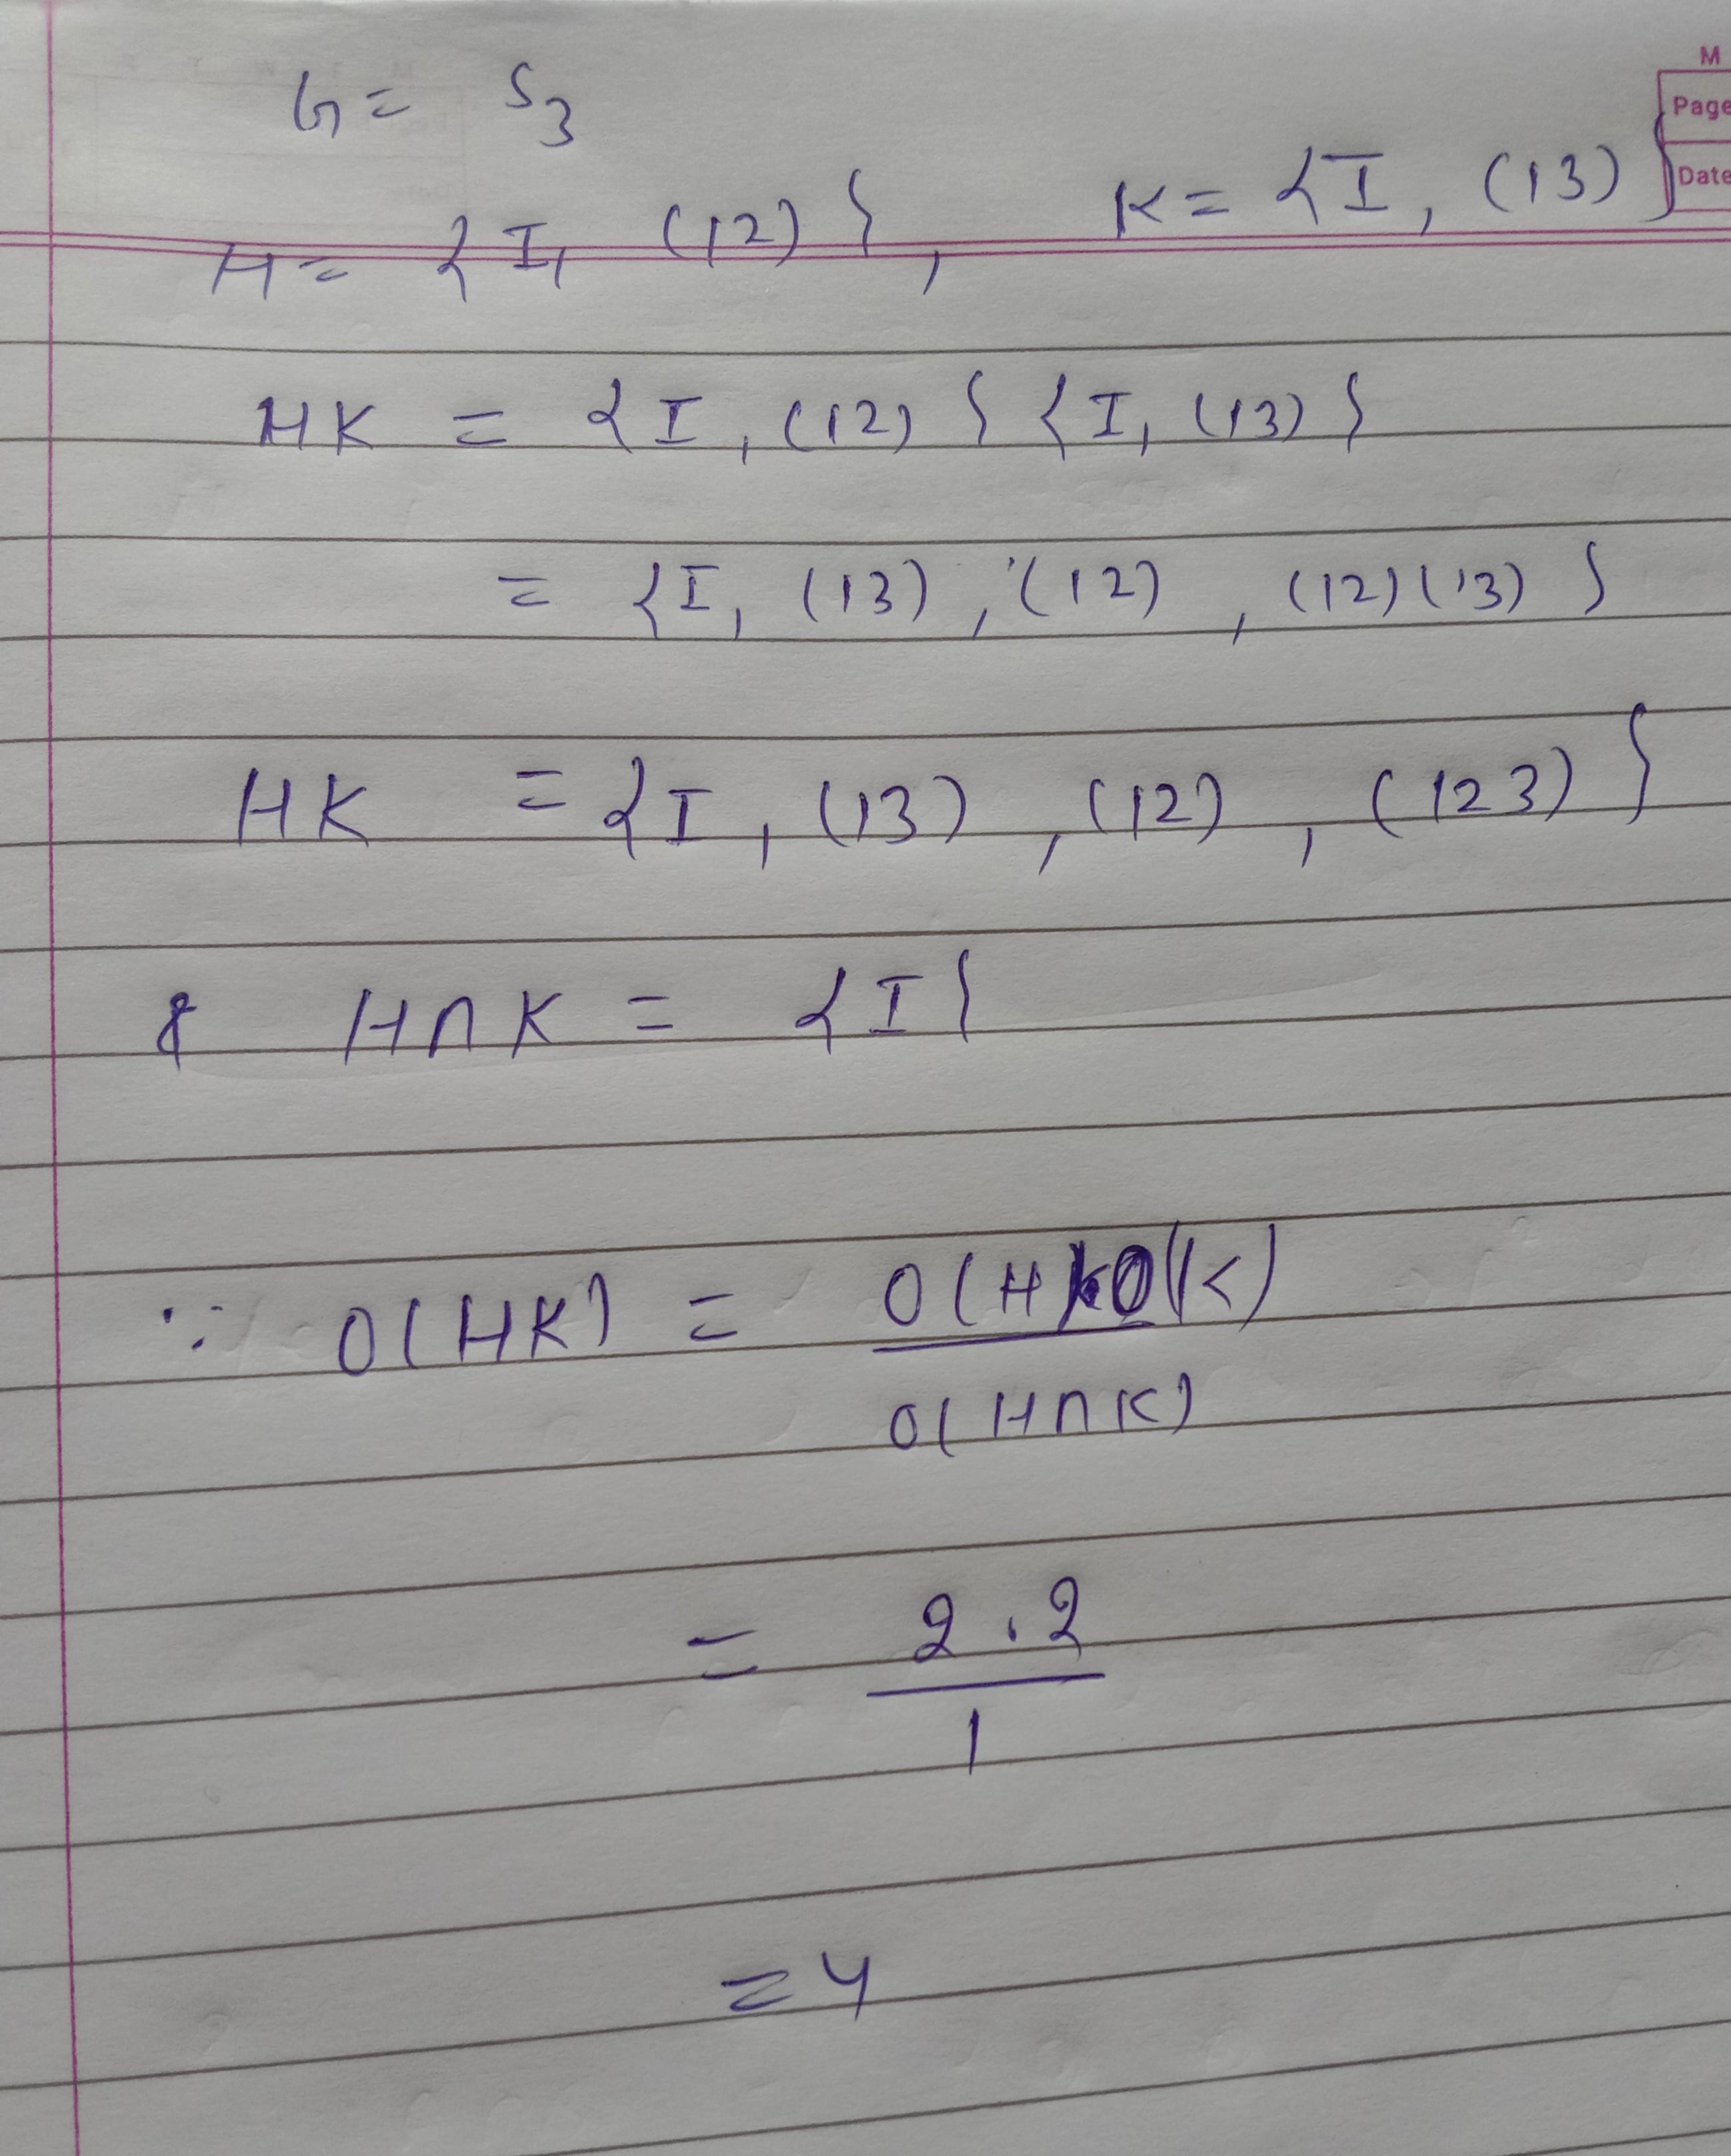 M
Page
Date
G = S3
H = {I, (12)}, K = {I, (13)}
HK = {I, (12)} {I, (13)}
= {I, (13), (12), (12)(13)}
HK = {I, (13), (12), (123)}
& H∩K = {I}
∵ O(HK) = O(H)O(K)
O(H∩K)
= 2.2
1
= 4